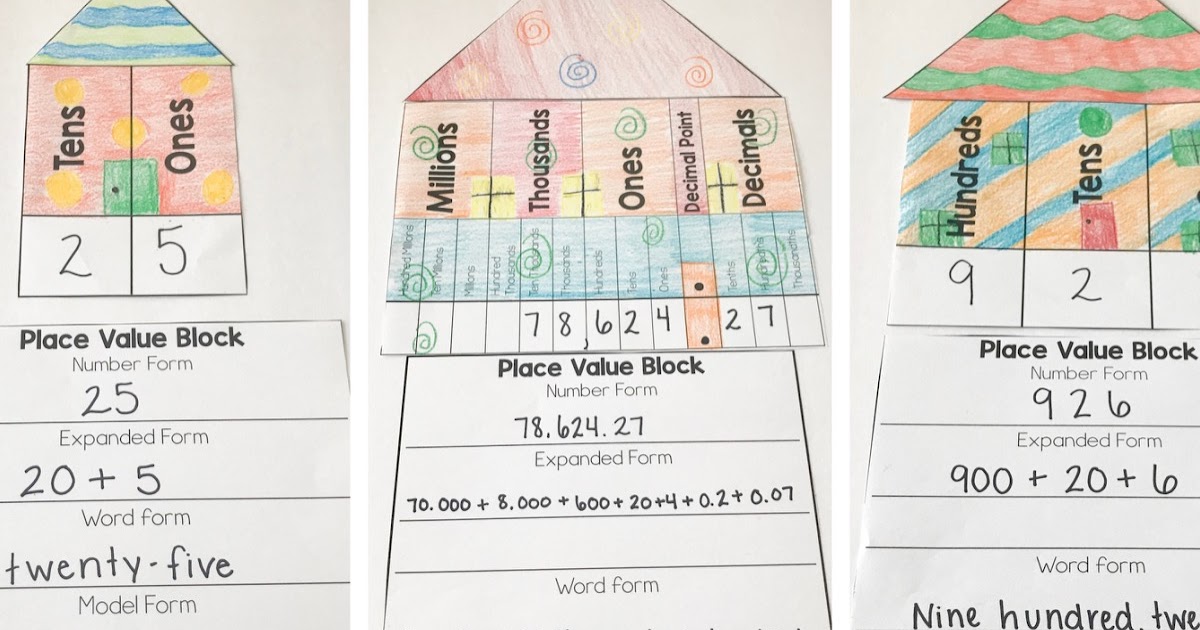 Tens Ones
2 5
Place Value Block
Number Form
25
Expanded Form
20 + 5
Word form
twenty-five
Model Form
Millions Thousands Ones Decimal Point Decimals
Hundred Millions Ten Millions Millions Hundred Thousands Ten Thousands Thousands Hundreds Tens Ones Tenths Hundredths Thousandths
7 8,6 2 4 . 2 7
Place Value Block
Number Form
78.624.27
Expanded Form
70.000 + 8.000 + 600 + 20 + 4 + 0.2 + 0.07
Word form
Hundreds Tens
9 2
Place Value Block
Number Form
926
Expanded Form
900 + 20 + 6
Word form
Nine hundred, twe